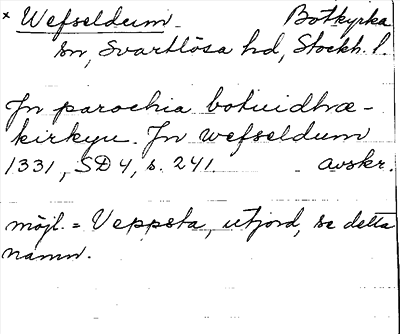 × Wefseldum Botkyrka
sn, Svartlösa hd, Stockh. l.
Jn parochia botuidhræ-
kirkyu. Jn wefseldum
1331, SD 4, s. 241. avskr.
möjl. = Veppsta, utjord, se detta
namn.